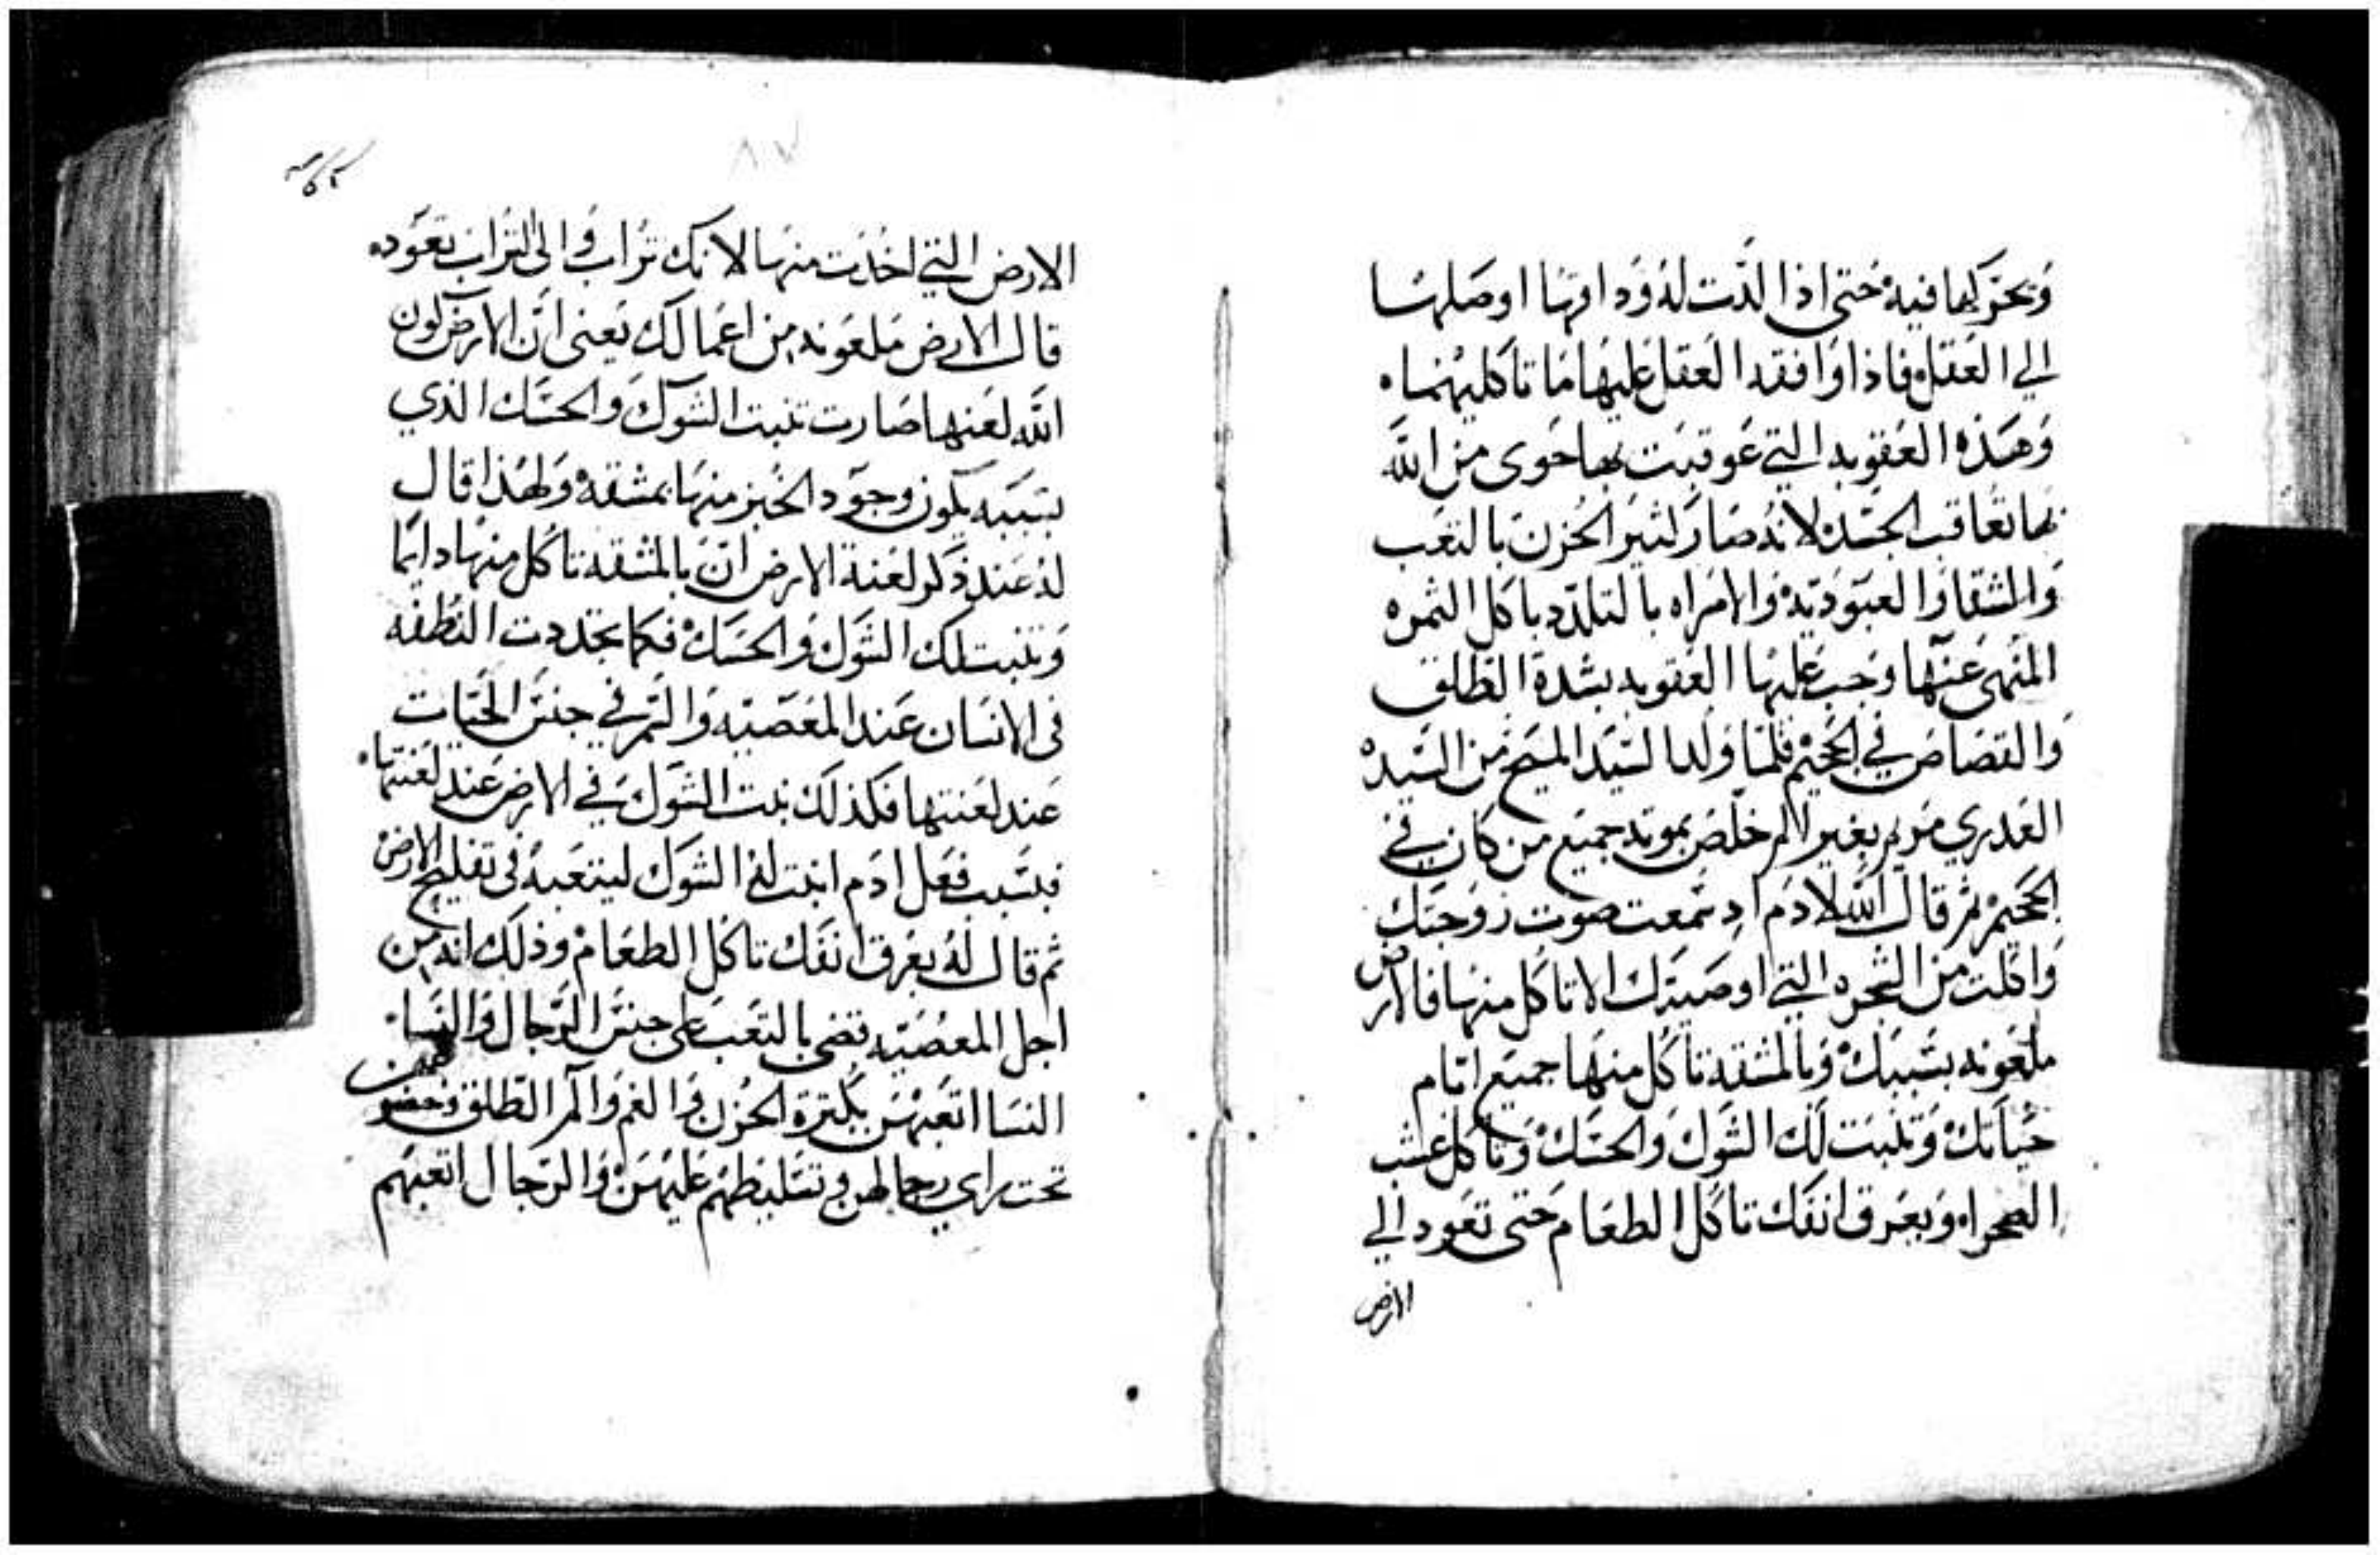 وَيحَركها فيه حَتى اذا الذت له وَداقتها اوصَلتها
الي العَقل فاذا وَافقه العَقل عَليهَا مَا تاكليهما ه
وَهَذه العُقوبه التي عَوقبَت بها حَوى من الله
بها تعَاقب الجسَد لانه صَار كثير الحُزن بالتعَب
وَالشقا وَالعبَوديّه وَالامراه بالتلدد باكل الثمره
المَنهى عَنها وَجبَ عَليها العَقوبه بشدة الطلق
وَالقصَاص في الجحيم فلمَا وَلد السَيد المسيح من السَيده
العَدري مَريم بغير الم خلص بموته جميَع من كان في
الجحَيم ثم قال الله لادَم اد سمعت صوت زوجتك
وَاكلت من الشجره التي اوصَيتك الا تاكل منها فالارض
ملعَونه بسَببك وَبالمشقه تاكل منهَا جميَع ايَام
حَياتك وَتنبَت لك الشوك وَالحسَك وَتاكل عشب
الصحراه وَبعَرق انفَك تاكل الطعَام حَتى تعَود الي
الارض
٨٧
الارض التي اخذت منها لانك تراب وَالى التراب تعَوده
قال الارض مَلعَونه من اعمَالك يَعنى انَ الارض لون
الله لعَنها صَارت تنبت الشوك وَالحسَك الذي
بسَببه يكون وجوَد الخبز منها بمشقه وَلهَذا قال
له عَند ذكر لعَنة الارض ان بالمشقه تاكل منها دايمَا
وَتنبت لك الشوك وَالحسَك فكما تجددت النطفه
فى الانسَان عَند المعَصَيه وَالسَم في جنسَ الحَيات
عَند لعَنتها فكذلك نبت الشوك في الارض عَند لعَنتها ه
فبسَبب فعَل ادَم انبت له الشوَك ليتعَبه فى تفليح الارض
ثم قال له بعَرق انفَك تاكل الطعَام وذلك انه من
اجل المعَصَيه قضى بالتعَب على جنسَ الرجال وَالنسَا
النسَا اتعَبهنَ بكثرة الحُزن وَالغم وَالم الطلق وخضوعهن
تحت راي رجالهن وتسَليطهم عَليهنَ وَالرجال اتعبَهم